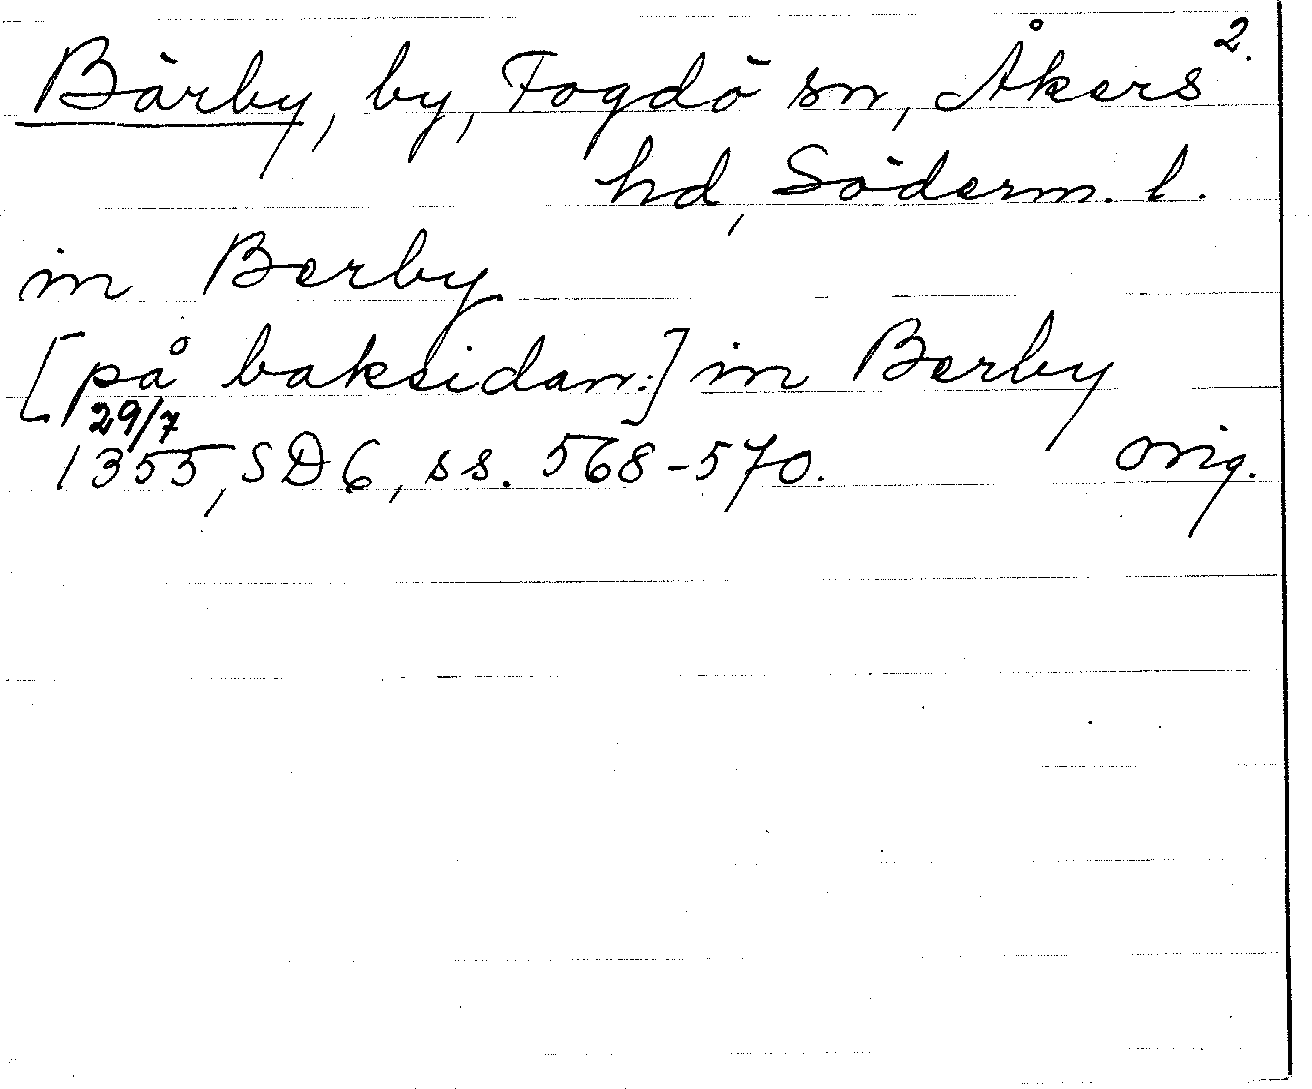 2.
Bärby, by, Fogdö sn, Åkers
hd, Söderm. l.
in Berby
[på baksidan:] in Berby
29/7
1355, SD 6, ss. 568-570. orig.